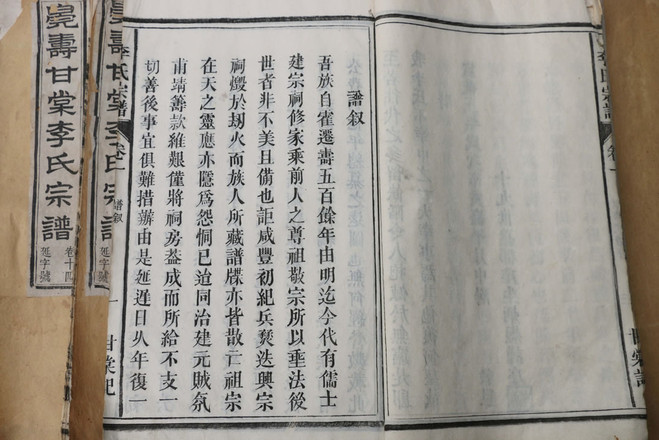 譜叙
吾族自霍遷壽五百餘年由明迄今代有儒士
建宗祠修家乘前人之尊祖敬宗所以垂法後
世者非不美且備也詎咸豐初紀兵燹迭興宗
祠燬於刼火而族人所藏譜牒亦皆散亡祖宗
在天之靈應亦隱為怨恫已迨同治建元賊氛
甫靖籌款維艱僅將祠房葢成而所給不支一
切善後事宜俱難措辦由是延遲日久年復一
李氏宗譜
卷一
譜叙
一
甘棠記
壽甘棠李氏宗譜
卷十四
延字號